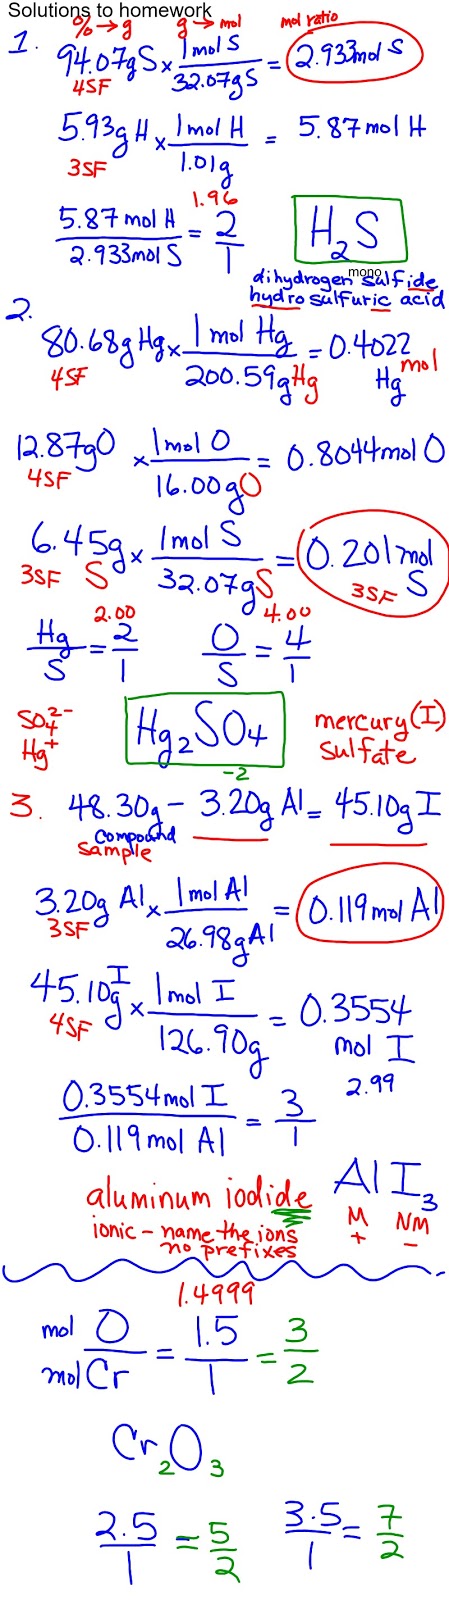 Solutions to homework
% → g   g → mol   mol ratio
1. 94.07g S × 1 mol S / 32.07g S = 2.933 mol S
4SF
5.93g H × 1 mol H / 1.01g = 5.87 mol H
3SF
1.96
5.87 mol H / 2.933 mol S = 2/1   H₂S
mono
dihydrogen sulfide
hydrosulfuric acid
2.
80.68g Hg × 1 mol Hg / 200.59g Hg = 0.4022 mol Hg
4SF
12.87g O × 1 mol O / 16.00g O = 0.8044 mol O
4SF
6.45g S × 1 mol S / 32.07g S = 0.201 mol S
3SF   3SF
2.00   4.00
Hg/S = 2/1   O/S = 4/1
SO₄²⁻   Hg₂SO₄   mercury(I)
Hg⁺   sulfate
-2
3. 48.30g - 3.20g Al = 45.10g I
compound
sample
3.20g Al × 1 mol Al / 26.98g Al = 0.119 mol Al
3SF
45.10g I × 1 mol I / 126.90g = 0.3554 mol I
4SF
2.99
0.3554 mol I / 0.119 mol Al = 3/1
aluminum iodide   AlI₃
ionic – name the ions   M   NM
no prefixes   +   −
1.4999
mol O / mol Cr = 1.5/1 = 3/2
Cr₂O₃
2.5/1 = 5/2   3.5/1 = 7/2